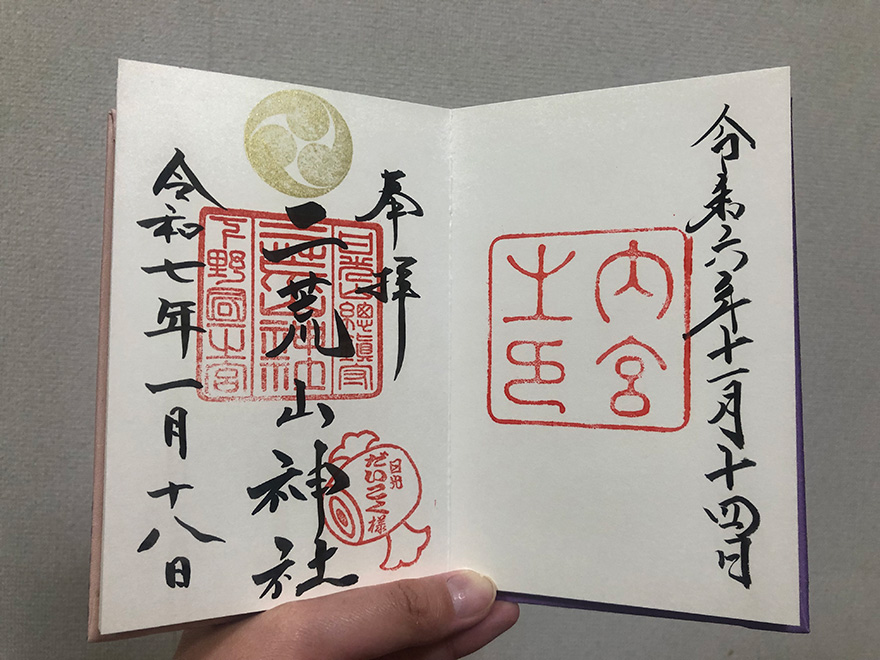 令和六年十一月十四日
内宮
之印
奉拝
二荒山神社
令和七年一月十八日
日光山總鎮守
日光
だいこく様